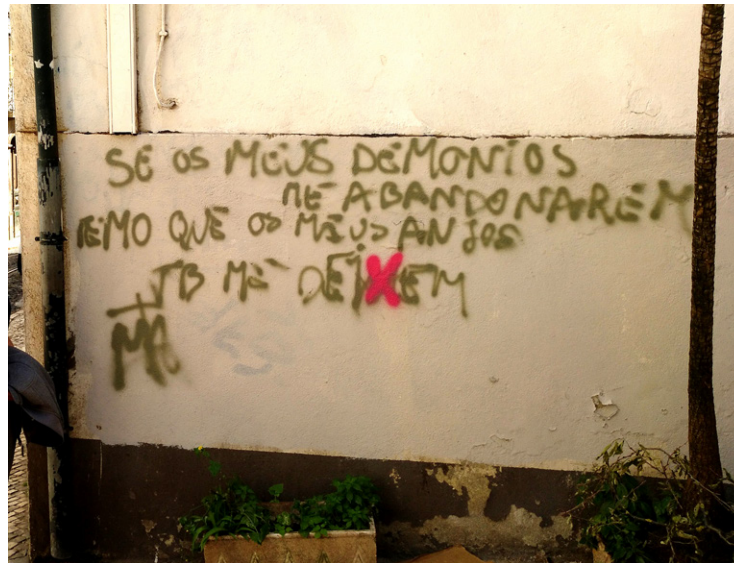 SE OS MEUS DEMONIOS
ME ABANDONAREM
TEMO QUE OS MEUS ANJOS
TB ME DEIXEM